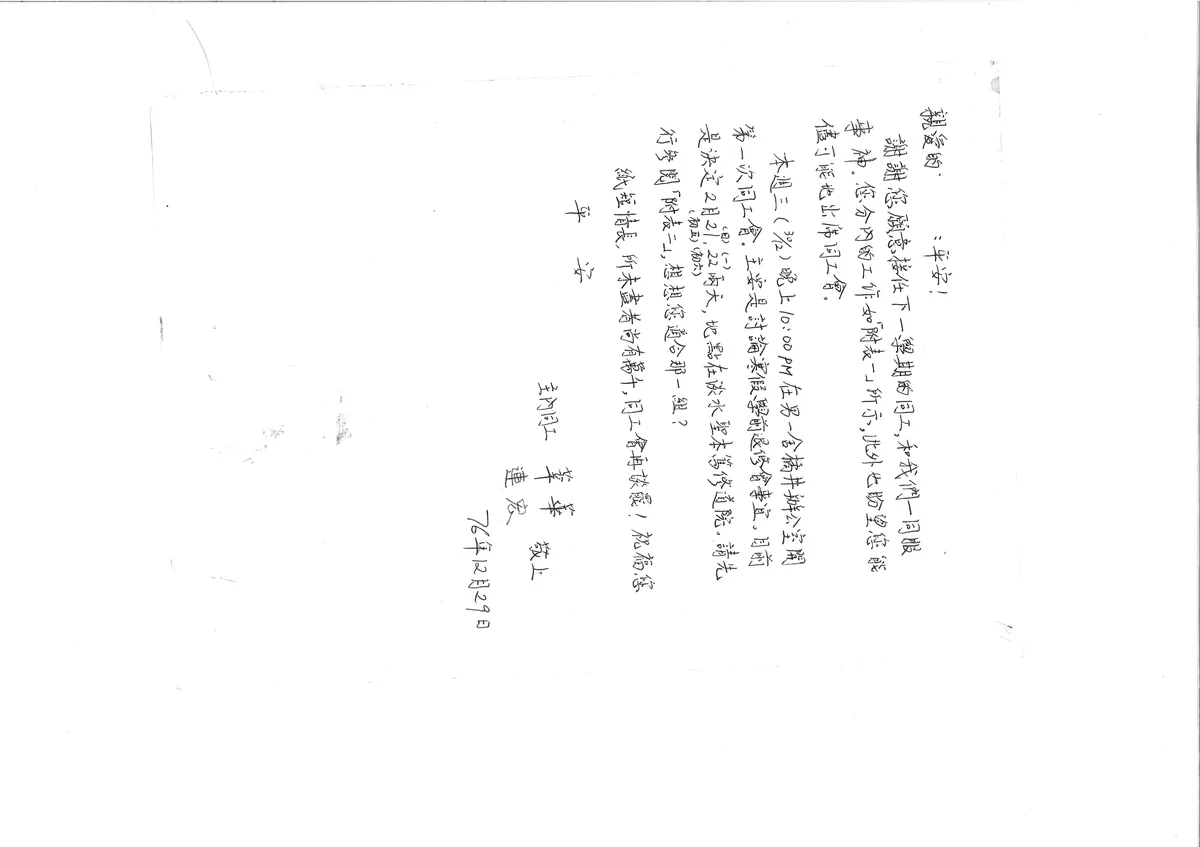 親愛的 ：平安！
謝謝您願意接任下一學期的同工，和我們一同服
事神。您分內的工作如「附表一」所示，此外也盼望您能
儘可能地出席同工會。
本週三（30/12）晚上10:00PM在男一舍橘井辦公室開
第一次同工會。主要是討論寒假學前退修會事宜。目前
(日) (一)
是決定2月21，22兩天，地點在淡水聖本篤修道院。請先
(初五)(初六)
行參閱「附表二」，想想您適合那一組？
紙短情長，所未盡者尚有萬千，同工會再談罷！祝福您
平 安
主內同工 莘華
連宏 敬上
76年12月29日